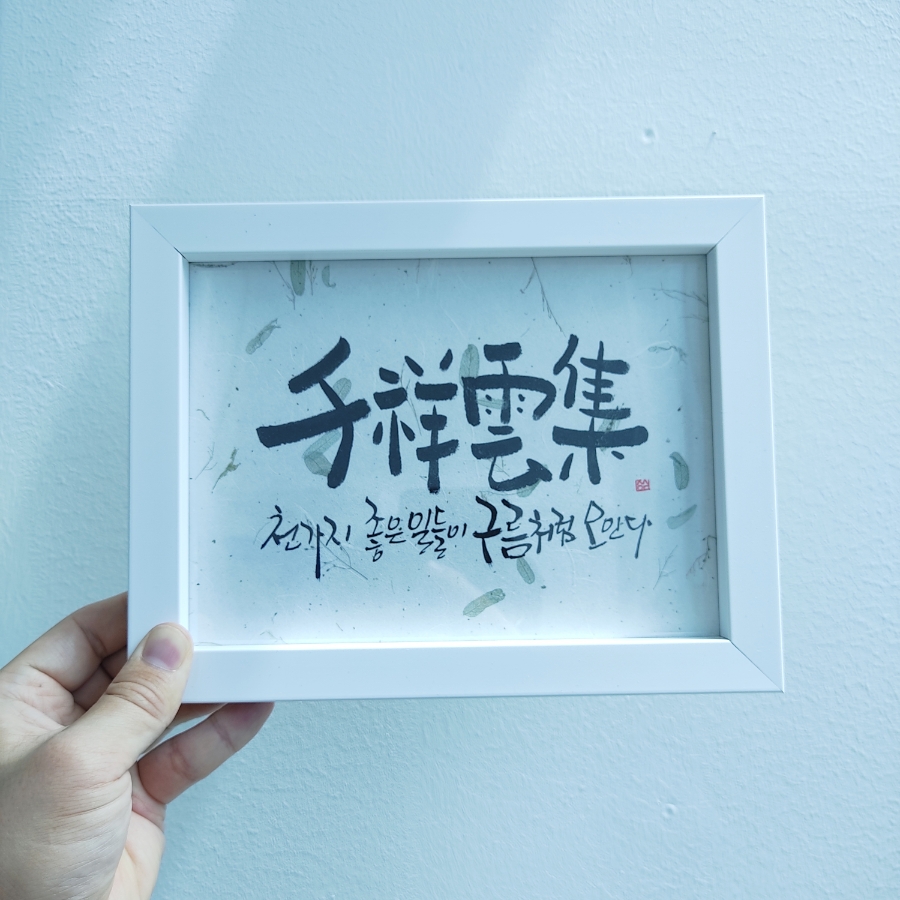 千祥雲集
천가지 좋은 일들이 구름처럼 오안다.